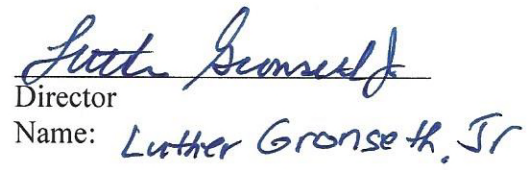 Luther Gronseth Jr
Director
Name: Luther Gronseth, Jr